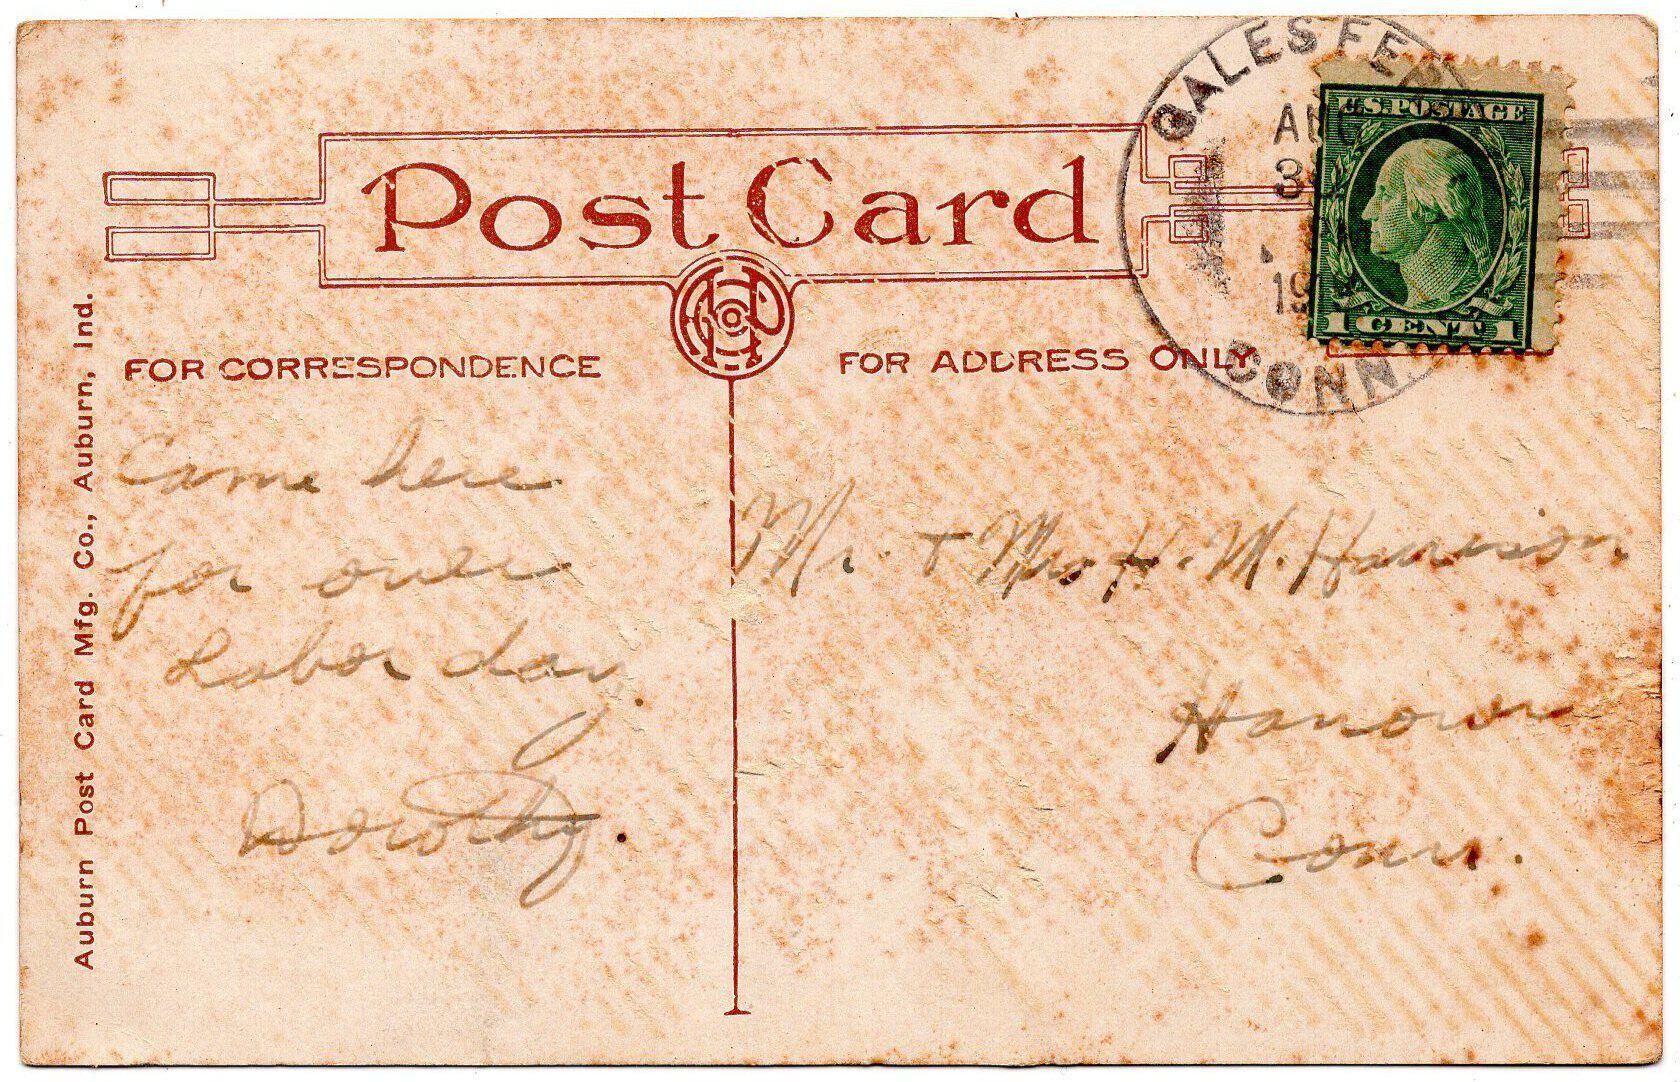 Post Card
GALES FER
AU
3
19
CONN
U.S. POSTAGE
1 CENT 1
FOR CORRESPONDENCE
FOR ADDRESS ONLY
Auburn Post Card Mfg. Co., Auburn, Ind.
Came here
for over
Labor day.
Dorothy.
Mr. & Mrs H. M. Harrison
Hanover
Conn.